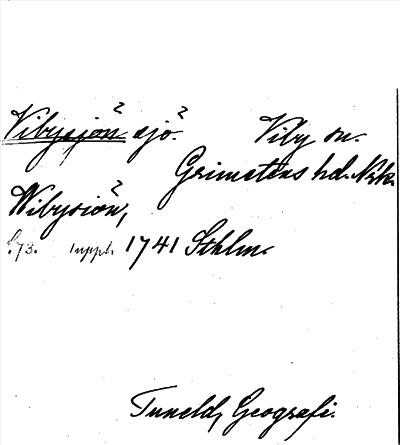 Vibysjön sjö. Viby sn.
Grimstens hd. Nrk.
Wibysiön,
s. 73. 1 uppl. 1741 Sthlm.
Tuneld, Geografi.